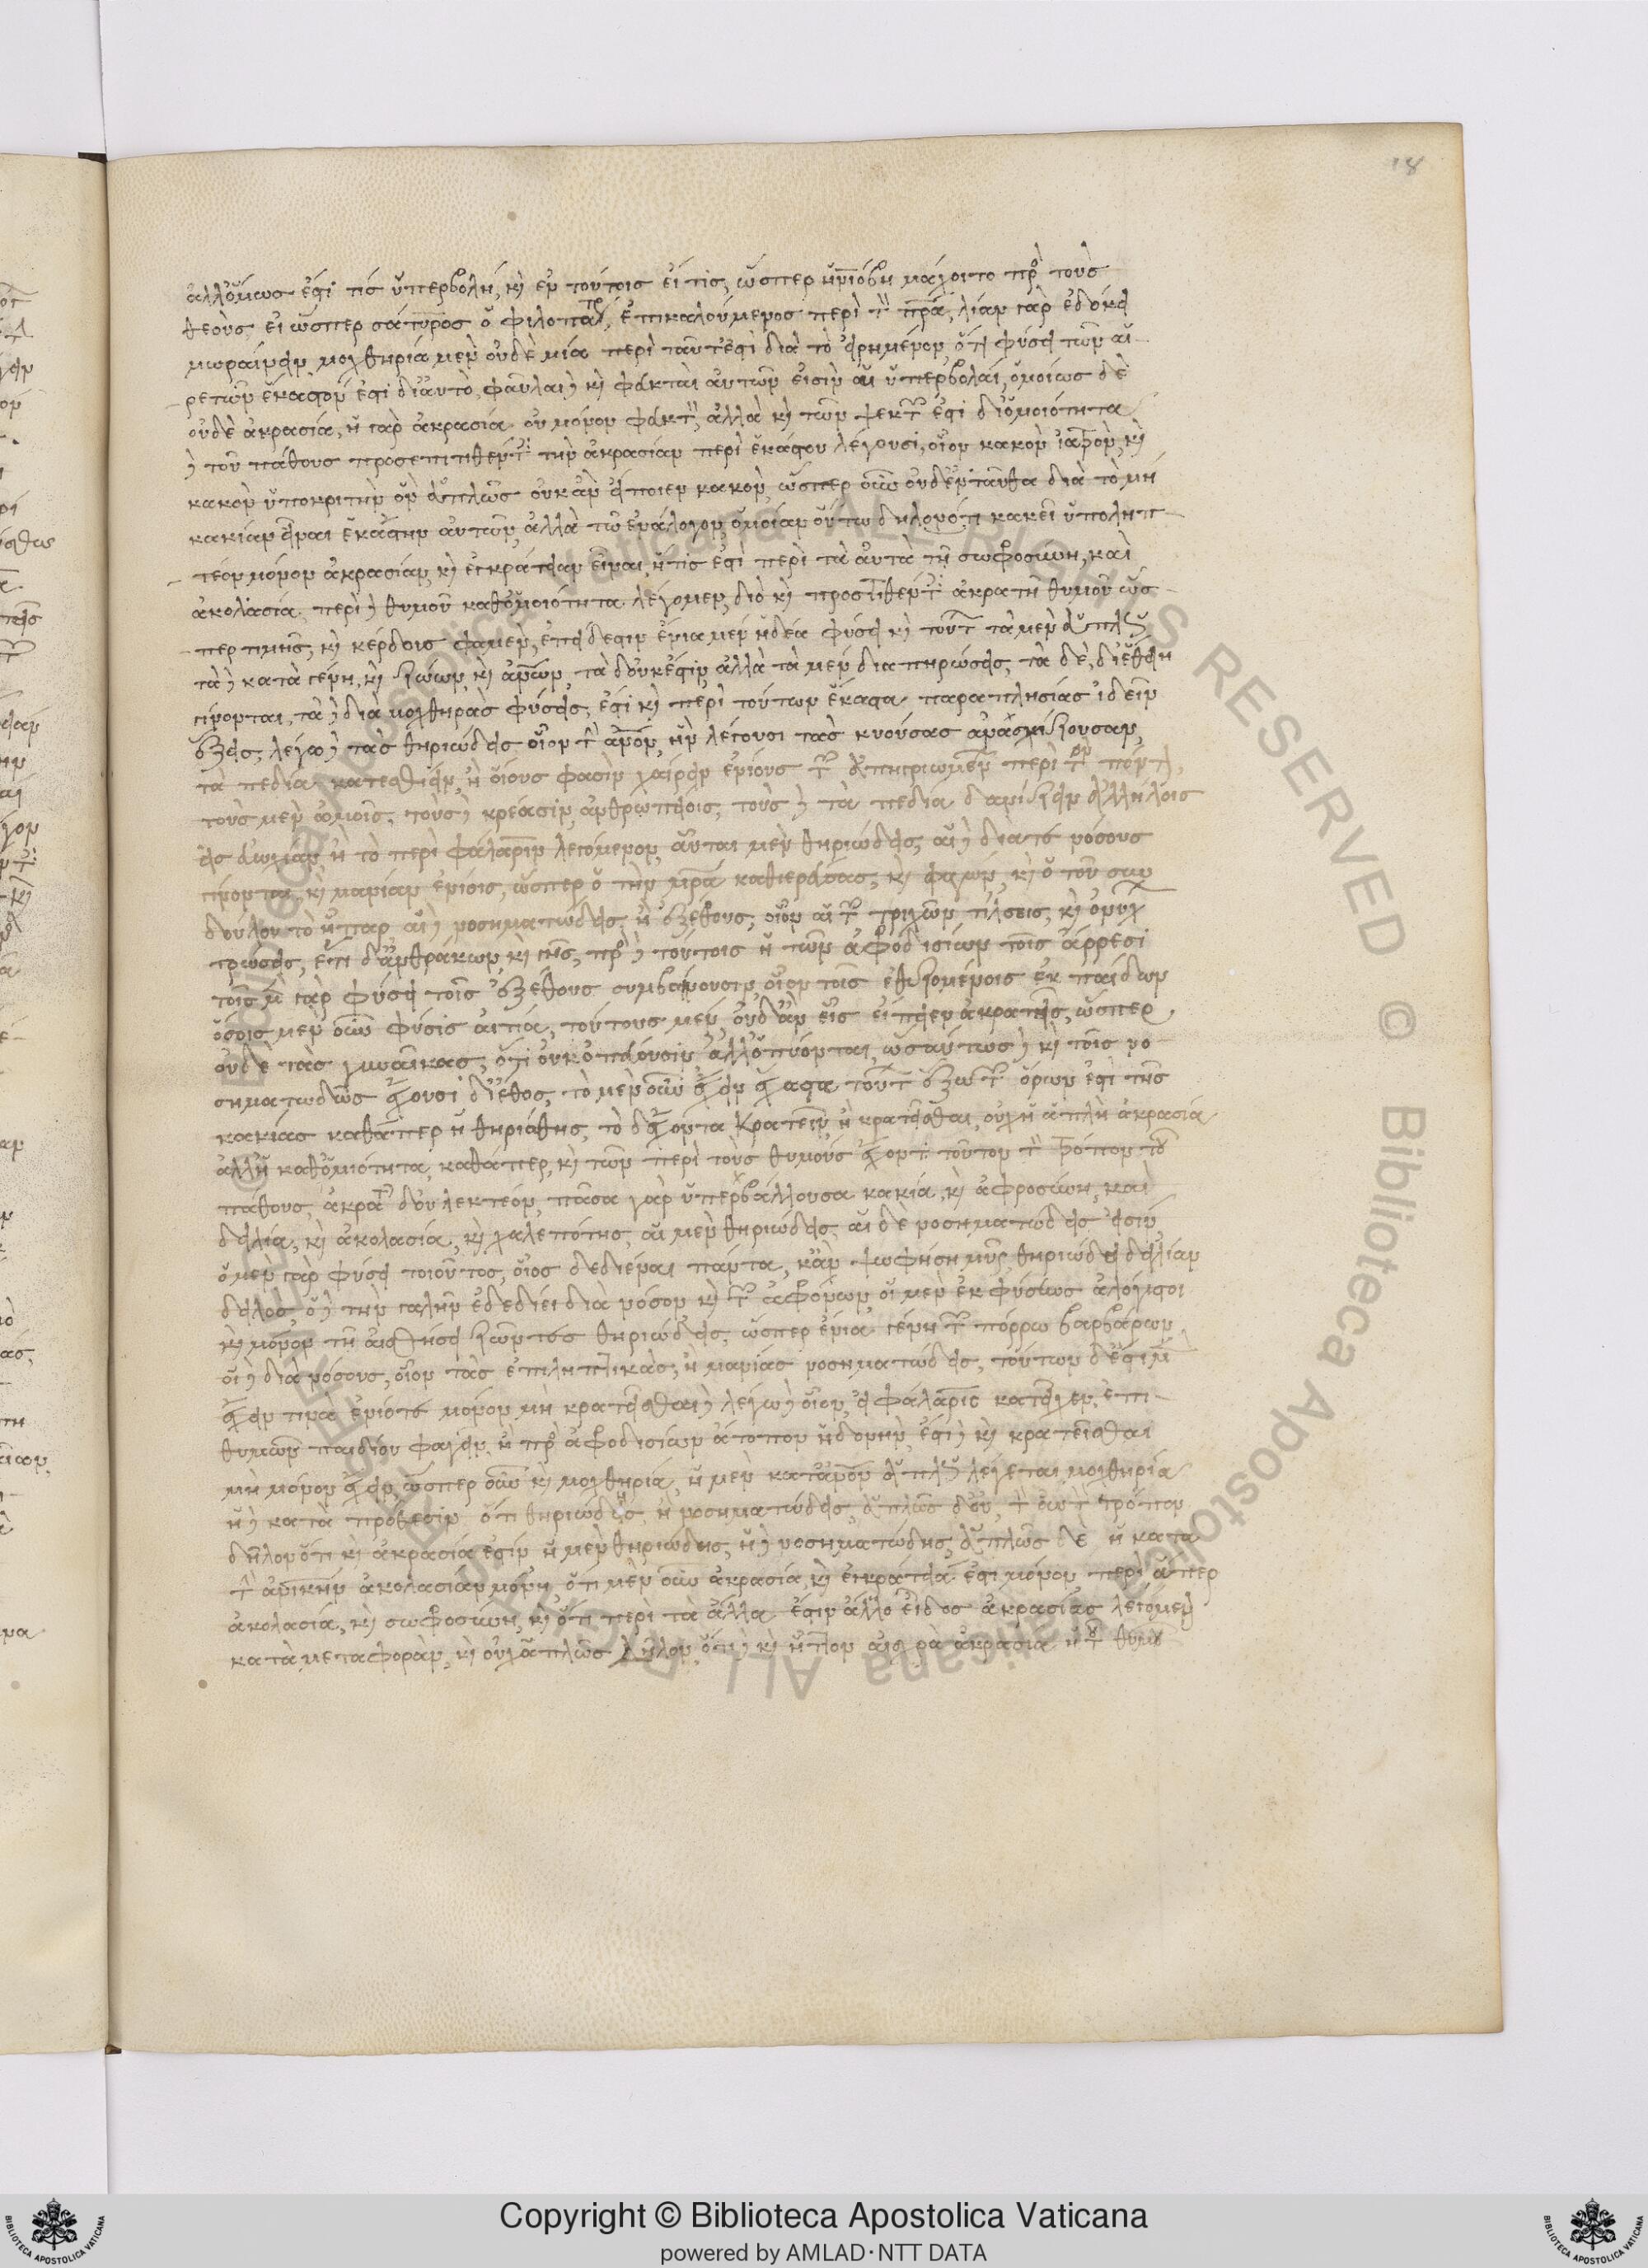 18
ἀλλ' ὅμως ἐστί τις ὑπερβολὴ, καὶ ἐν τούτοις εἴ τις, ὥσπερ ἡ νιόβη μάχοιτο πρὸς τοὺς
θεούς, εἰ ὥσπερ σάτυρος ὁ φιλοπάτωρ, ἐπικαλούμενος περὶ τὸν πρα, λίαν γὰρ ἐδόκει
μωραίνειν μοχθηρία μὲν οὐδὲ μία περὶ ταῦτ' ἐστὶ διὰ τὸ εἰρημένον, ὅτι φύσει τῶν αἱ-
ρετῶν ἕκαστόν ἐστι δι' αὑτὸ, φαῦλαι δὲ καὶ φευκταὶ αὐτῶν εἰσὶν αἱ ὑπερβολαί, ὁμοίως δὲ
οὐδὲ ἀκρασία, ἡ γὰρ ἀκρασία οὐ μόνον φευκτὸν, ἀλλὰ καὶ τῶν ψεκτῶν ἐστὶ δι' ὁμοιότητα
δὲ τοῦ πάθους προσεπιτιθέντες τὴν ἀκρασίαν περὶ ἑκάστου λέγουσι, οἷον κακὸν ἰατρὸν, καὶ
κακὸν ὑποκριτὴν ὃν ἁπλῶς οὐκ ἂν εἴποιεν κακὸν, ὥσπερ οὖν οὐδ' ἐνταῦθα διὰ τὸ μὴ
κακίαν εἶναι ἑκάστην αὐτῶν, ἀλλὰ τῷ ἀνάλογον, ὁμοίαν οὕτω δηλονότι κακεῖ ὑποληπ-
τέον μόνον ἀκρασίαν, καὶ ἐγκράτειαν εἶναι, ἥτις ἐστὶ περὶ τὰ αὐτὰ τῇ σωφροσύνῃ, καὶ
ἀκολασία περὶ δὲ θυμοῦ καθ' ὁμοιότητα λέγομεν, διὸ καὶ προστιθέντες ἀκρατῆ θυμοῦ ὥσ-
περ τιμῆς, καὶ κέρδους φαμὲν, ἐπεὶ δ' ἐστὶν ἔνια μὲν ἡδέα φύσει καὶ τούτων τὰ μὲν ἁπλῶς
τὰ δὲ κατὰ γένη, καὶ ζώων, καὶ ἀνων, τὰ δ' οὐκ ἔστιν, ἀλλὰ τὰ μὲν διὰ πηρώσεις, τὰ δὲ, δι' ἔθη
γίνονται, τὰ δὲ διὰ μοχθηρὰς φύσεις, ἔστι καὶ περὶ τούτων ἕκαστα παραπλησίας ἰδεῖν
ἕξεις, λέγω δὲ τὰς θηριώδεις οἷον τὴν ἀνον, ἣν λέγουσι τὰς κυούσας ἀνασχίζουσαν,
τὰ πεδία κατεσθίειν, ἢ οἵους φασὶν χαίρειν ἐνίους τῶν ἀπηγριωμένων περὶ τὸν πόντον,
τοὺς μὲν ὠμοῖς, τοὺς δὲ κρέασιν, ἀνθρωπείοις, τοὺς δὲ τὰ πεδία δανίζειν ἀλλήλοις
εἰς εὐωχίαν ἢ τὸ περὶ φάλαριν λεγόμενον, αὗται μὲν θηριώδεις, αἱ δὲ διά τε νόσους
γίνονται, καὶ μανίαν ἐνίοις, ὥσπερ ὁ τὴν μρα καθιερεύσας, καὶ φαγών, καὶ ὁ τοῦ συν
δούλου τὸ ἧπαρ, αἱ δὲ νοσηματώδεις ἢ ἐξ ἔθους, οἷον αἱ τῶν τριχῶν τίλσεις, καὶ ὀνύχων
τρώσεις, ἔτι δ' ἀνθράκων, καὶ γῆς, πρὸς δὲ τούτοις ἡ τῶν ἀφροδισίων τοῖς ἄρρεσι
τοῖς μὲν γὰρ φύσει τοῖς δ' ἐξ ἔθους συμβαίνουσιν, οἷον τοῖς ἐθιζομένοις ἐκ παίδων
ὅσοις μὲν οὖν φύσις αἰτία, τούτους μὲν, οὐδ' ἂν εἷς εἴπειεν ἀκρατεῖς, ὥσπερ
οὐδὲ τὰς γυναῖκας, ὅτι οὐκ ὀπύουσιν, ἀλλ' ὀπύονται, ὡσαύτως δὲ καὶ τοῖς νο-
σηματωδῶς ἔχουσι δι' ἔθος, τὸ μὲν οὖν ἔχειν ἕκαστα τούτων ἔξω τῶν ὅρων ἐστὶ τῆς
κακίας καθάπερ ἡ θηριότης, τὸ δ' ἔχοντα κρατεῖν, ἢ κρατεῖσθαι, οὐχ ἡ ἁπλῆ ἀκρασία
ἀλλ' ἡ καθ' ὁμοιότητα, καθάπερ, καὶ τῶν περὶ τοὺς θυμοὺς ἔχοντα τοῦτον τὸν τρόπον τοῦ
πάθους, ἀκρατῆ δ' οὐ λεκτέον, πᾶσα γὰρ ὑπερβάλλουσα κακία, καὶ ἀφροσύνη, καὶ
δειλία, καὶ ἀκολασία, καὶ χαλεπότης, αἱ μὲν θηριώδεις, αἱ δὲ νοσηματώδεις εἰσίν
ὁ μὲν γὰρ φύσει τοιοῦτος, οἷος δεδιέναι πάντα, κἂν ψωφήσῃ μῦς θηριώδει δειλίαν
δειλὸς, ὁ δὲ τὴν γαλῆν ἐδεδίει διὰ νόσον καὶ τῶν ἀφρόνων, οἱ μὲν ἐκ φύσεως ἀλόγιστοι
καὶ μόνον τῇ αἰσθήσει ζῶντες θηριώδεις, ὥσπερ ἔνια γένη τῶν πόρρω βαρβάρων
οἱ δὲ διὰ νόσους, οἷον τὰς ἐπιληπτικὰς, ἢ μανίας νοσηματώδεις, τούτων δ' ἔστι μὲν
ἔχειν τινὰ ἐνίοτε μόνον μὴ κρατεῖσθαι δὲ λέγω δὲ οἷον, εἰ φάλαρις κατεῖχεν, ἐπι-
θυμῶν παιδίου φαγεῖν, ἢ πρὸς ἀφροδισίων ἄτοπον ἡδονὴν, ἔστι δὲ καὶ κρατεῖσθαι
μὴ μόνον ἔχειν, ὥσπερ οὖν καὶ μοχθηρία, ἡ μὲν κατ' ἀνον ἁπλῶς λέγεται μοχθηρία
ἡ δὲ κατὰ πρόθεσιν ὅτι θηριώδης, ἢ νοσηματώδης, ἁπλῶς δ' οὔ, τὸν αὐτὸν τρόπον
δῆλον ὅτι καὶ ἀκρασία ἐστὶν ἡ μὲν θηριώδης, ἡ δὲ νοσηματώδης, ἁπλῶς δὲ ἡ κατὰ
τὴν ἀνικὴν ἀκολασίαν μόνη, ὅτι μὲν οὖν ἀκρασία, καὶ ἐγκράτειά ἐστι μόνον περὶ ἅπερ
ἀκολασία, καὶ σωφροσύνη, καὶ ὅτι περὶ τὰ ἄλλα ἐστὶν ἄλλο εἶδος ἀκρασίας λεγόμεν
κατὰ μεταφορὰν, καὶ οὐχ ἁπλῶς δῆλον, ὅτι δὲ καὶ ἧττον αἰσχρὰ ἀκρασία ἡ τοῦ θυμοῦ
Copyright © Biblioteca Apostolica Vaticana
powered by AMLAD·NTT DATA